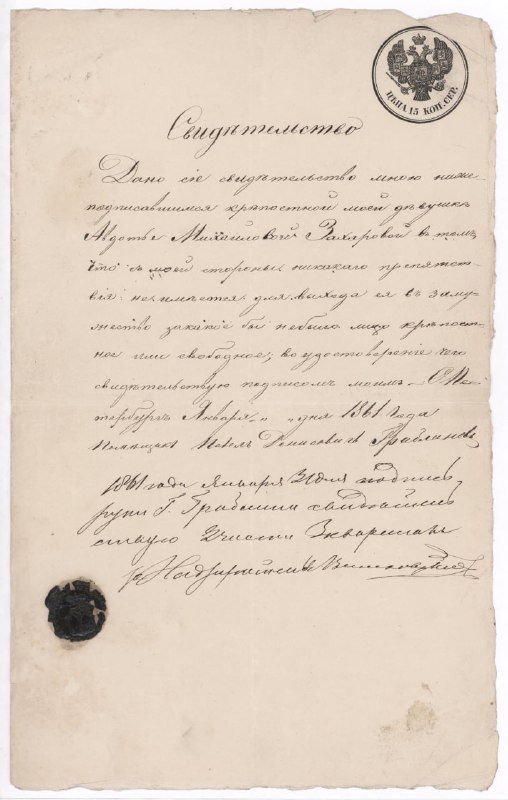 ЦѢНА 15 КОП. СЕР.
Свидѣтельство
Дано сіе свидѣтельство мною ниже
подписавшимся крѣпостной моей дѣвушкѣ
Авдотьѣ Михайловой Захаровой въ томъ,
что съ моей стороны никакаго препятст-
вія неимѣется для выхода ея въ заму-
жество закакое бы небыло лицо крѣпост-
ное или свободное; во удостовѣреніе чего
свидѣтельствую подписомъ моимъ. С. Пе-
тербургъ Января „ „ дня 1861 года
Помѣщикъ Павелъ Денисовичъ
1861 года Января 31 дня подпись
руки Г. свидѣтель-
ствую 2 части 3 квартала
Надзиратель